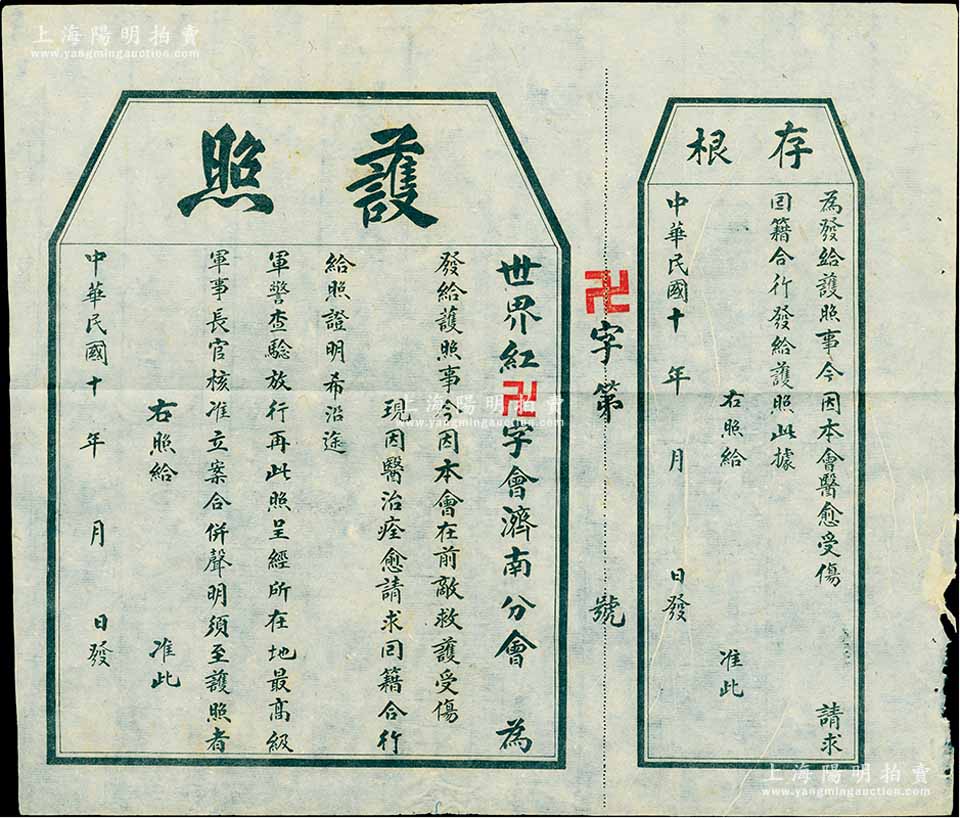 上海陽明拍賣
www.yangmingauction.com
存根
為發給護照事今因本會醫愈受傷 請求
回籍合行發給護照此據
右照給 准此
中華民國十 年 月 日發
卍字第 號
護照
世界紅卍字會濟南分會 為
發給護照事今因本會在前敵救護受傷
現因醫治痊愈請求回籍合行
給照證明希沿途
軍警查驗放行再此照呈經所在地最高級
軍事長官核准立案合併聲明須至護照者
右照給 准此
中華民國十 年 月 日發
上海陽明拍賣
www.yangmingauction.com
上海陽明拍賣
www.yangmingauction.com